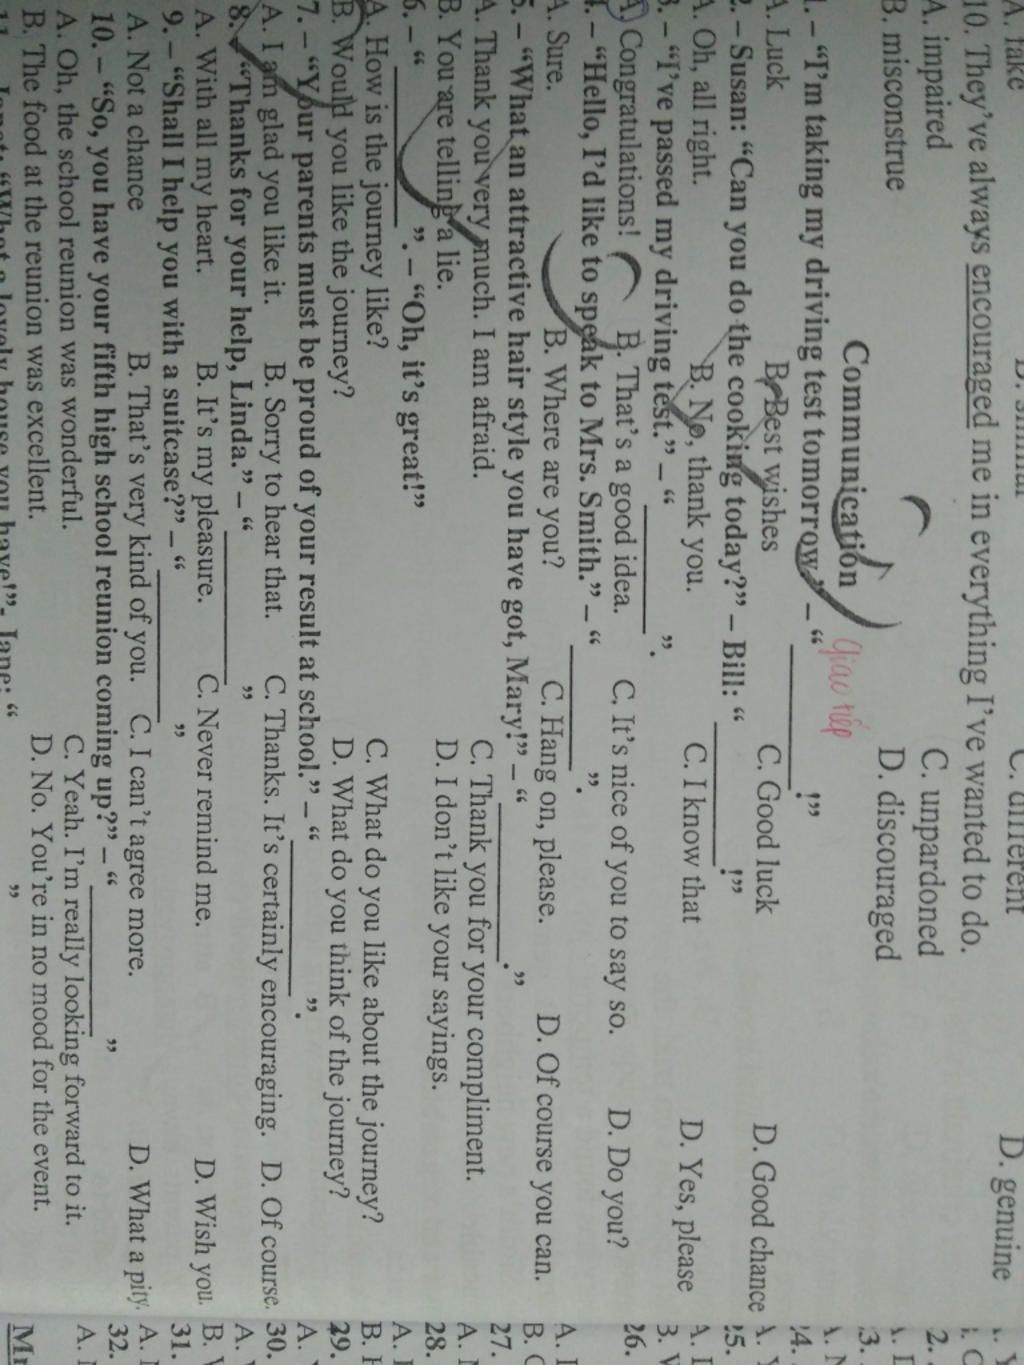 A. fake B. similar C. different D. genuine
10. They've always encouraged me in everything I've wanted to do.
A. impaired C. unpardoned
B. misconstrue D. discouraged
Communication giao tiếp
1. – "I'm taking my driving test tomorrow." – "________!"
A. Luck B. Best wishes C. Good luck D. Good chance
2. – Susan: "Can you do the cooking today?" – Bill: "________!"
A. Oh, all right. B. No, thank you. C. I know that D. Yes, please
3. – "I've passed my driving test." – "________".
A. Congratulations! B. That's a good idea. C. It's nice of you to say so. D. Do you?
4. – "Hello, I'd like to speak to Mrs. Smith." – "________".
A. Sure. B. Where are you? C. Hang on, please. D. Of course you can.
5. – "What an attractive hair style you have got, Mary!" – "________."
A. Thank you very much. I am afraid. C. Thank you for your compliment.
B. You are telling a lie. D. I don't like your sayings.
6. – "________". – "Oh, it's great!"
A. How is the journey like? C. What do you like about the journey?
B. Would you like the journey? D. What do you think of the journey?
7. – "Your parents must be proud of your result at school." – "________".
A. I am glad you like it. B. Sorry to hear that. C. Thanks. It's certainly encouraging. D. Of course.
8. – "Thanks for your help, Linda." – "________"
A. With all my heart. B. It's my pleasure. C. Never remind me. D. Wish you.
9. – "Shall I help you with a suitcase?" – "________"
A. Not a chance B. That's very kind of you. C. I can't agree more. D. What a pity.
10. – "So, you have your fifth high school reunion coming up?" – "________"
A. Oh, the school reunion was wonderful. C. Yeah. I'm really looking forward to it.
B. The food at the reunion was excellent. D. No. You're in no mood for the event.
11. Janet: "What a lovely house you have!"- Jane: "________"
2.
3.
26.
27.
28.
29.
30.
31.
32.